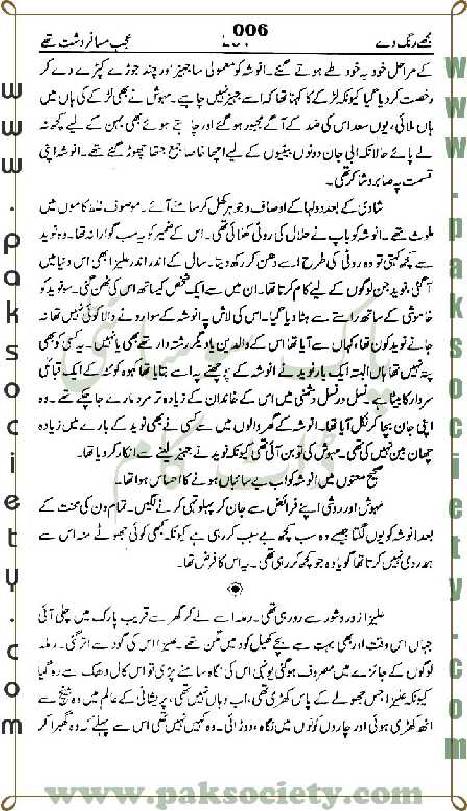 مجھے رنگ دے 006 عجب مسافرِ دشت تھے
کے مراحل خود بہ خود طے ہوتے گئے۔ انوشہ کو معمولی سا جہیز اور چند جوڑے کپڑے دے کر
رخصت کر دیا گیا کیونکہ لڑکے کا کہنا تھا کہ اسے جہیز نہیں چاہیے۔ مہوش نے بھی لڑکے کی ہاں میں
ہاں ملائی، یوں سعد اس کی ضد کے آگے مجبور ہو گئے اور چاہتے ہوئے بھی بہن کے لیے کچھ نہ
لے پائے حالانکہ ابی جان دونوں بیٹیوں کے لیے اچھا خاصا جمع جتھا چھوڑ گئے تھے۔ انوشہ اپنی
قسمت پہ صابر و شاکر تھی۔
شادی کے بعد دولہا کے اوصاف و جوہر کھل کر سامنے آئے۔ موصوف غلط کاموں میں
ملوث تھے۔ انوشہ کو باپ نے حلال کی روٹی کھلائی تھی۔ اس کے ضمیر کو یہ سب گوارا نہ تھا۔ وہ نوید
سے کچھ کہتی تو وہ روئی کی طرح اسے دھن کر رکھ دیتا۔ سال کے اندر اندر ملیزا بھی اس دنیا میں
آ گئی، نوید جن لوگوں کے لیے کام کرتا تھا۔ ان میں سے ایک شخص کیساتھ اس کی ٹھن گئی۔ سو نوید کو
خاموشی کے ساتھ راستے سے ہٹا دیا گیا۔ اس کی لاش پہ انوشہ کے سوا رونے والا کوئی نہیں تھا نہ
جانے نوید کون تھا، کہاں سے آیا تھا اس کے والدین یا دیگر رشتہ دار تھے بھی یا نہیں۔ یہ کسی کو بھی
پتہ نہیں تھا ہاں البتہ ایک بار نوید نے انوشہ کے پوچھنے پہ اسے بتایا تھا کہ وہ کوئٹہ کے ایک قبائلی
سردار کا بیٹا ہے نسل در نسل دشمنی میں اس کے خاندان کے زیادہ تر مرد مارے جا چکے تھے۔ وہ
اپنی جان بچا کر نکل آیا تھا۔ انوشہ کے گھر والوں میں سے کسی نے بھی نوید کے بارے میں زیادہ
چھان بین نہیں کی تھی۔ مہوش کی تو بن آئی تھی کیونکہ نوید نے جہیز لینے سے انکار کر دیا تھا۔
صحیح معنوں میں انوشہ کو اب بے سائباں ہونے کا احساس ہوا تھا۔
مہوش اور روشی اپنے فرائض سے جان کر پہلو تہی کرنے لگیں۔ تمام دن کی محنت کے
بعد انوشہ کو یوں لگتا جیسے وہ سب کچھ بے سبب کر رہی ہے کیونکہ کبھی کوئی جھوٹے منہ اس سے
ہمدردی نہیں کرتا تھا گویا وہ جو کچھ کر رہی تھی۔ یہ اس کا فرض تھا۔
علیزا زور و شور سے رو رہی تھی۔ رملہ اسے لے کر گھر سے قریب پارک میں چلی آئی
جہاں اس وقت اور بھی بہت سے بچے کھیل کود میں مگن تھے۔ علیزا اس کی گود سے اتر گئی۔ رملہ
لوگوں کے جائزے میں مصروف ہو گئی یونہی اس کی نگاہ سامنے پڑی تو اس کا دل دھک سے رہ گیا
کیونکہ علیزا جس جھولے کے پاس کھڑی تھی، اب وہاں نہیں تھی، پریشانی کے عالم میں وہ بینچ سے
اٹھ کھڑی ہوئی اور چاروں کونوں میں نگاہ دوڑائی۔ وہ کہیں نہیں تھی اس سے پہلے کہ وہ گھبرا کر
www.paksociety.com
www.paksociety.com
www.paksociety.com